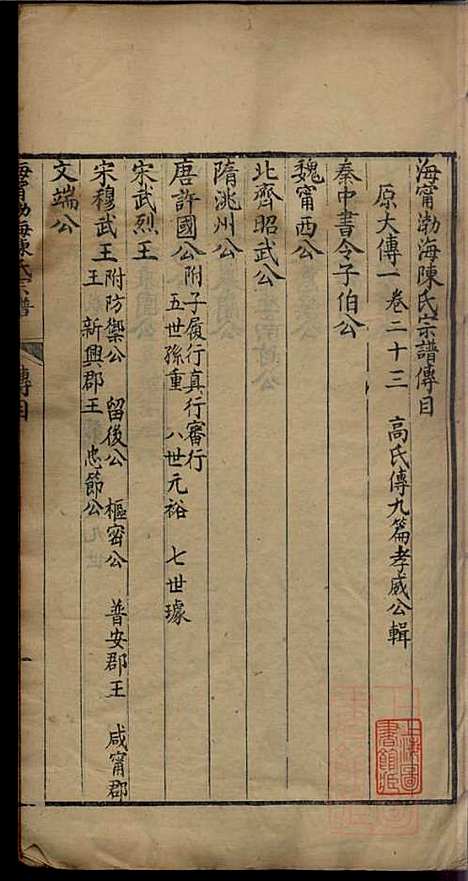 海甯渤海陳氏宗譜傳目
原大傳一卷二十三 高氏傳九篇孝威公輯
秦中書令子伯公
魏甯西公
北齊昭武公
隋洮州公
唐許國公附子履行真行審行
五世孫重 八世元裕 七世璩
宋武烈王
宋穆武王附防禦公 留後公 樞密公 普安郡王 咸甯郡
王 新興郡王 忠節公
文端公
海甯渤海陳氏宗譜
傳目
一
上海圖
書館藏